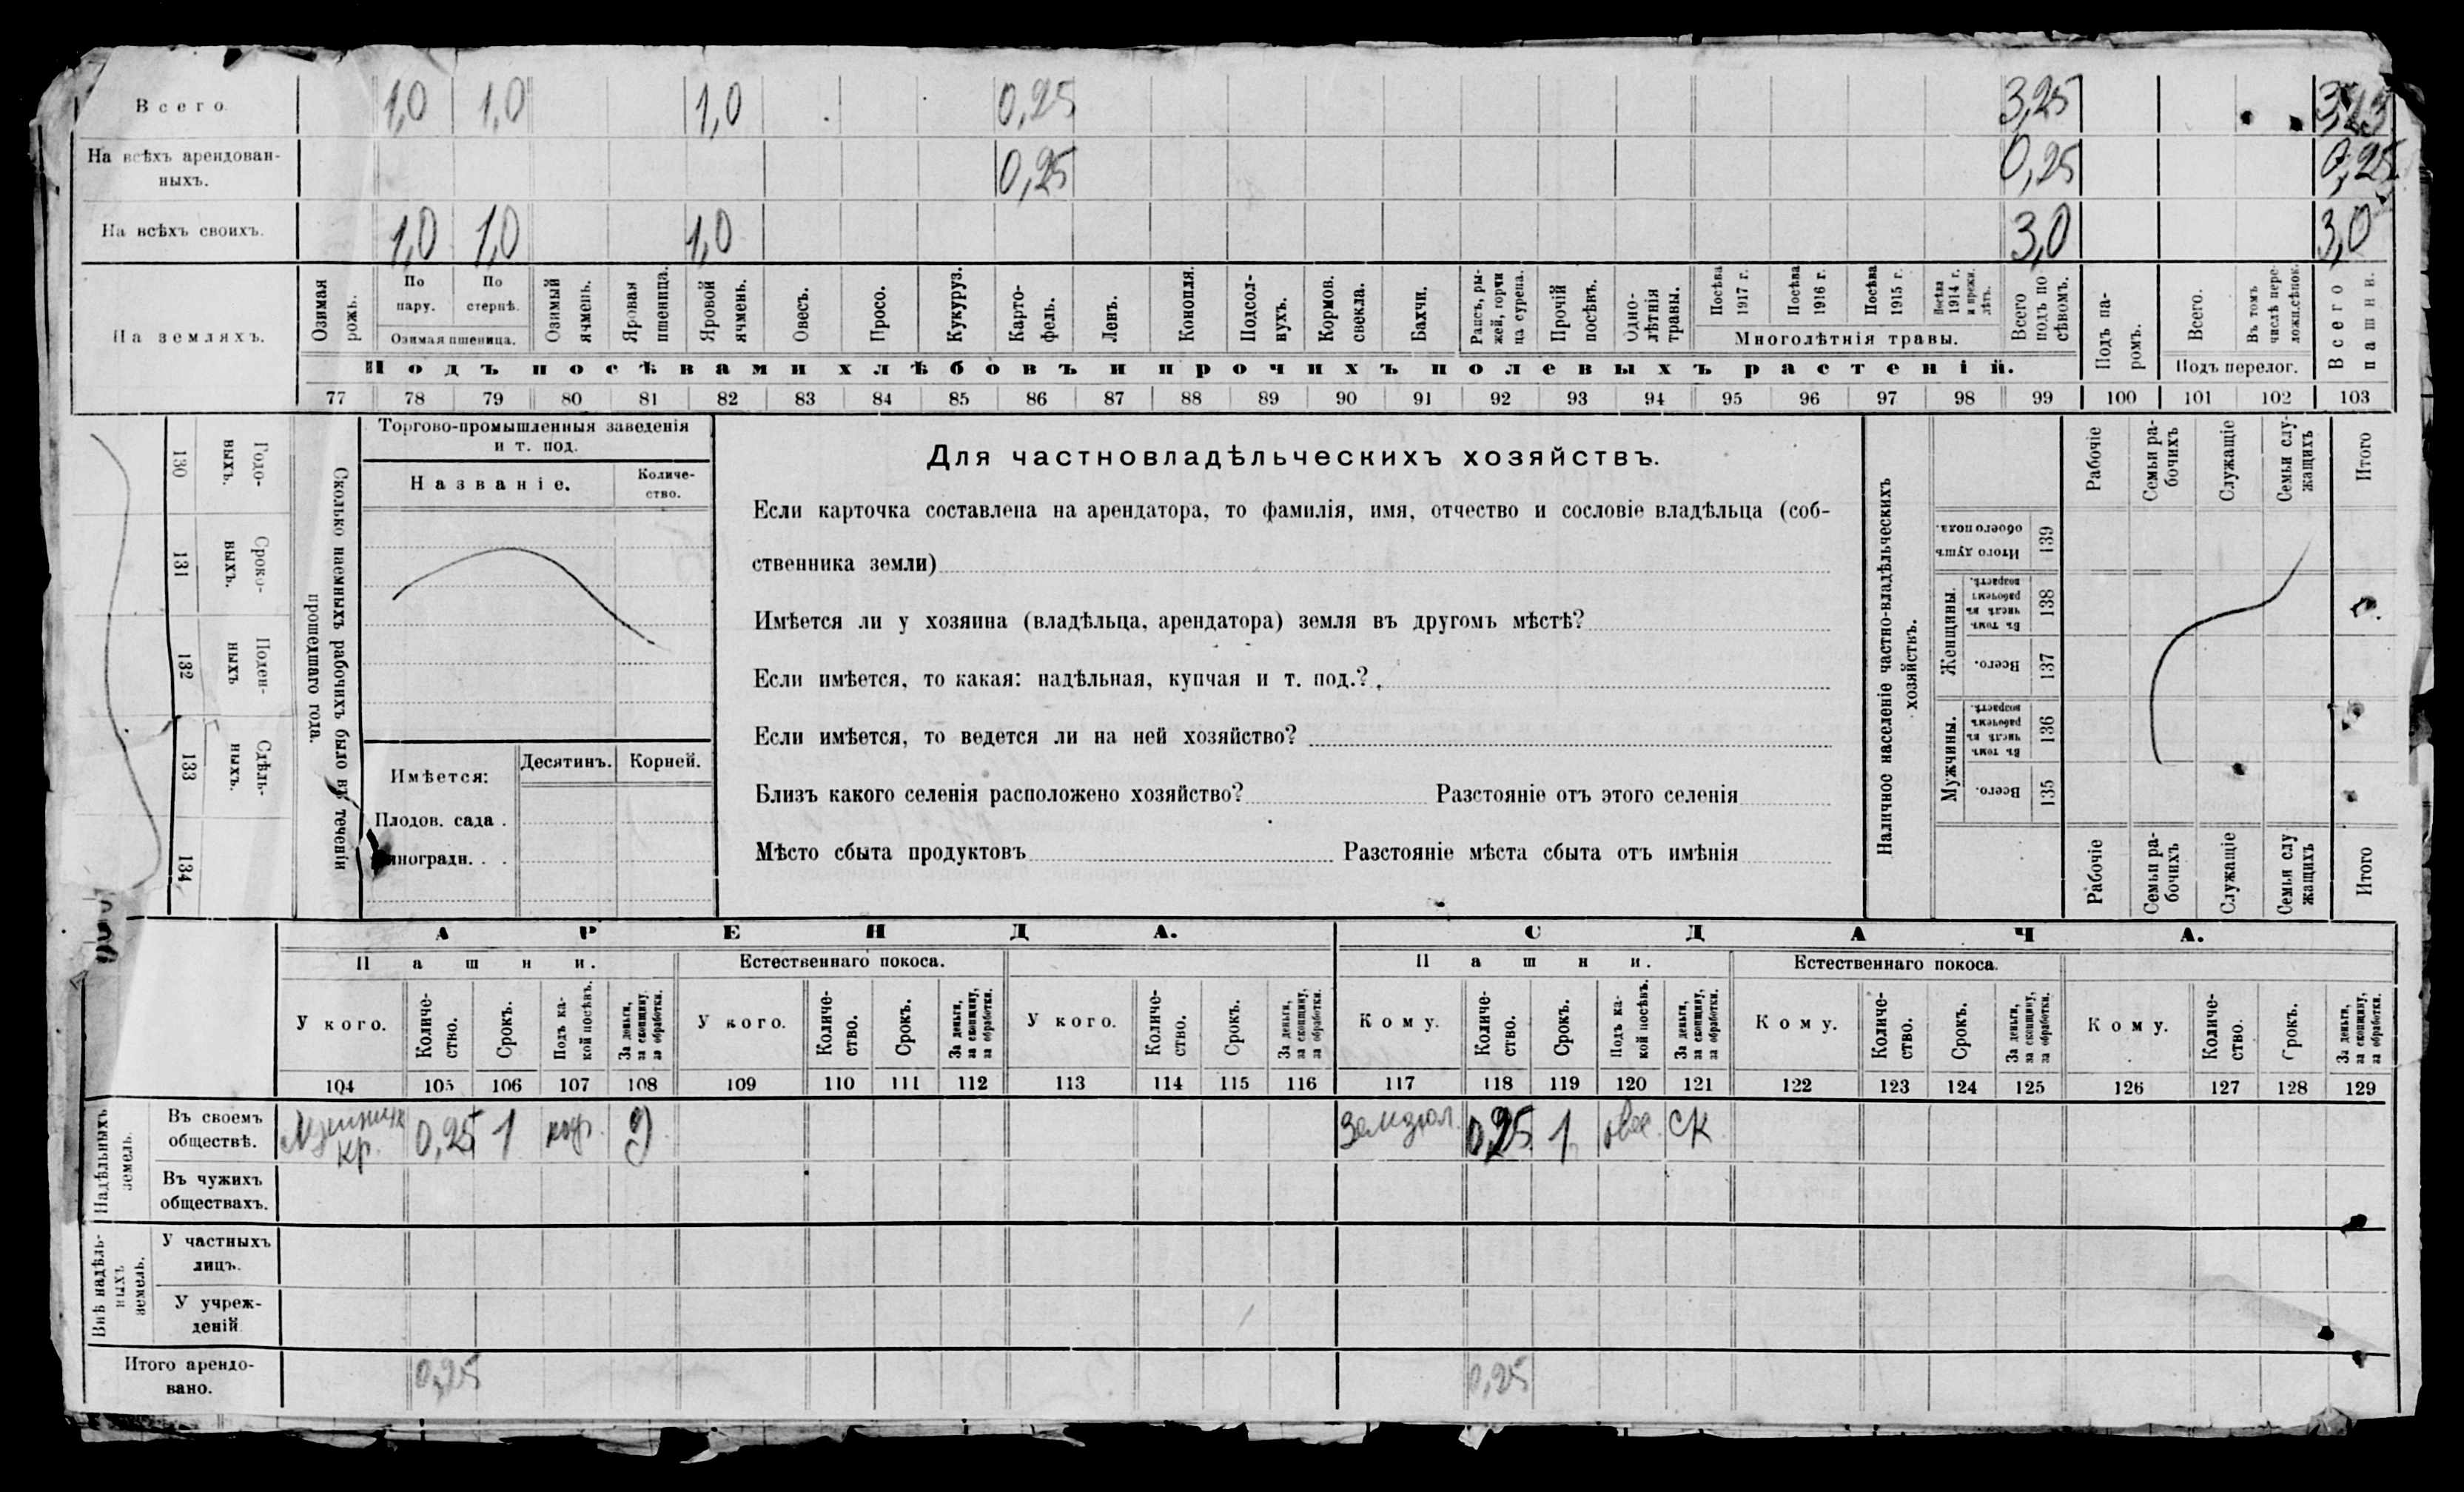 Всего 1,0 1,0 1,0 0,25 3,25
На всѣхъ арендован-
ныхъ. 0,25 0,25 0,25
На всѣхъ своихъ. 1,0 1,0 1,0 3,0 3,0
На земляхъ.
Озимая рожь.
По пару.
По стернѣ.
Озимая пшеница.
Озимый ячмень.
Яровая пшеница.
Яровой ячмень.
Овесъ.
Просо.
Кукуруз.
Карто-
фель.
Ленъ.
Конопля.
Подсол-
нухъ.
Кормов.
свекла.
Бахчи.
Рапсъ, ры-
жей, горчи
ца сурепа.
Прочій
посѣвъ.
Одно-
лѣтнія
травы.
Посѣва
1917 г.
Посѣва
1916 г.
Посѣва
1915 г.
Посѣва
1914 г.
и прежн.
лѣтъ.
Многолѣтнія травы.
Всего
подъ по
сѣвомъ.
Подъ па-
ромъ.
Всего.
Въ томъ
числѣ пере-
Подъ перелог.
Всего
пашни.
Подъ посѣвами хлѣбовъ и прочихъ полевыхъ растеній.
77 78 79 80 81 82 83 84 85 86 87 88 89 90 91 92 93 94 95 96 97 98 99 100 101 102 103
Сколько наемныхъ рабочихъ было въ теченіи
прошедшаго года.
Годо-
выхъ.
130
Сроко-
выхъ.
131
Поден-
ныхъ
132
Сдѣль-
ныхъ.
133
134
Торгово-промышленныя заведенія
и т. под.
Названіе.
Количе-
ство.
Имѣется:
Десятинъ.
Корней.
Плодов. сада .
Виноградн. . .
Для частновладѣльческихъ хозяйствъ.
Если карточка составлена на арендатора, то фамилія, имя, отчество и сословіе владѣльца (соб-
ственника земли)
Имѣется ли у хозяина (владѣльца, арендатора) земля въ другомъ мѣстѣ?
Если имѣется, то какая: надѣльная, купчая и т. под.?
Если имѣется, то ведется ли на ней хозяйство?
Близъ какого селенія расположено хозяйство? Разстояніе отъ этого селенія
Мѣсто сбыта продуктовъ Разстояніе мѣста сбыта отъ имѣнія
Наличное населеніе частно-владѣльческихъ
хозяйствъ.
Рабочіе
Семьи ра-
бочихъ
Служащіе
Семьи слу-
жащихъ
Итого
Итого душъ
обоего пола.
139
Женщины.
Въ томъ
числѣ въ
рабочемъ
возрастѣ.
138
Всего.
137
Мужчины.
Въ томъ
числѣ въ
рабочемъ
возрастѣ.
136
Всего.
135
Рабочіе
Семьи ра-
бочихъ
Служащіе
Семья слу
жащихъ
Итого
АРЕНДА.
СДАЧА.
Пашни.
Естественнаго покоса.
Пашни.
Естественнаго покоса.
У кого.
Количе-
ство.
Срокъ.
Подъ ка-
кой посѣвъ.
За деньги,
за скопщину,
за обработки.
У кого.
Количе-
ство.
Срокъ.
За деньги,
за скопщину,
за обработки.
У кого.
Количе-
ство.
Срокъ.
За деньги,
за скопщину,
за обработки.
Кому.
Количе-
ство.
Срокъ.
Подъ ка-
кой посѣвъ.
За деньги,
за скопщину,
за обработки.
Кому.
Количе-
ство.
Срокъ.
За деньги,
за скопщину,
за обработки.
Кому.
Количе-
ство.
Срокъ.
За деньги,
за скопщину,
за обработки.
104 105 106 107 108 109 110 111 112 113 114 115 116 117 118 119 120 121 122 123 124 125 126 127 128 129
Надѣльныхъ
земель.
Въ своемъ
обществѣ.
кр. 0,25 1 д 0,25 1 ск
Въ чужихъ
обществахъ.
Внѣ надѣль-
ныхъ
земель.
У частныхъ
лицъ.
У учреж-
деній
Итого арендо-
вано. 0,25 0,25